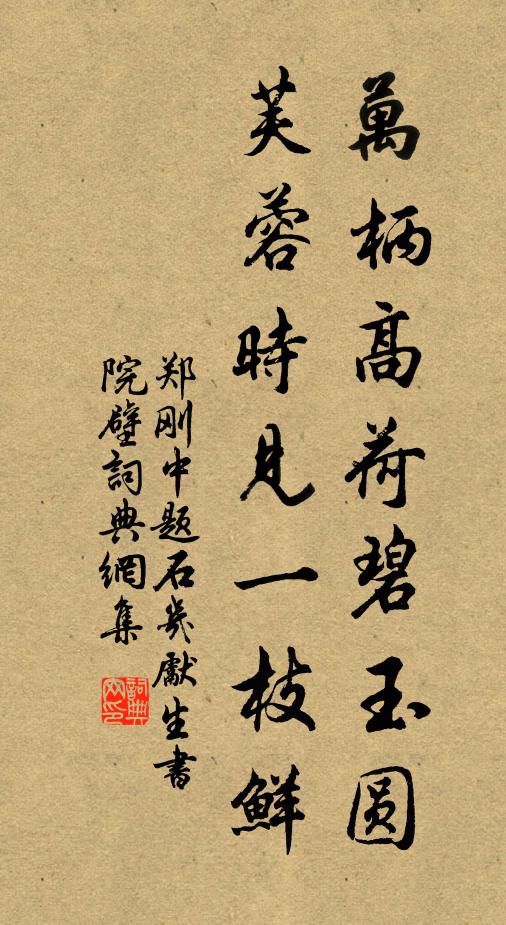 萬柄高荷碧玉圆
芙蓉時見一枝鮮
郑刚中题石岁獻生書
院壁詞典網集
詞典网印